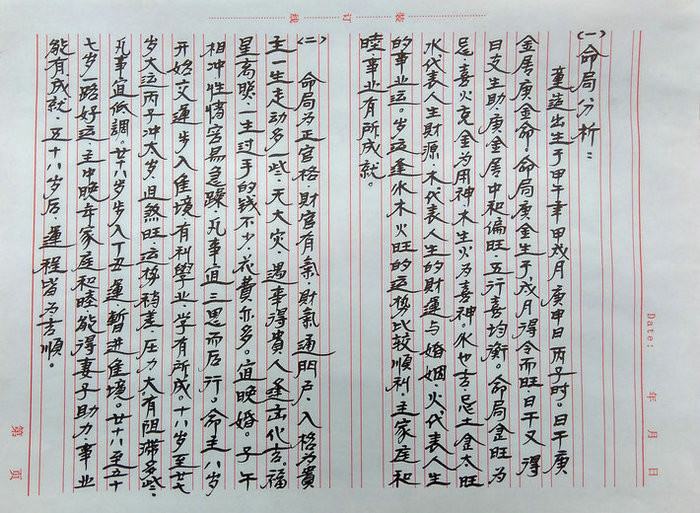 (一)命局分析：
董造出生于甲午年甲戌月庚申日丙子时。日干庚
金属庚金命。命局庚金生于戌月得令而旺·日干又得
日支生助·庚金属中和偏旺·五行喜均衡。命局金旺为
忌·喜火克金为用神·木生火为喜神。水也吉·忌土金太旺
水代表人生財源·木代表人生的財運与婚姻·火代表人生
的事业运。岁运逢水木火旺的运势比较順利·主家庭和
睦·事业有所成就。
(二)命局为正官格·財官有氣·財氣通門户·入格为貴
主一生走动多一些·无大灾·遇事得貴人逢凶化吉。福
星高照·一生过手的钱不少·花費亦多。宜晚婚。子午
相冲性情容易急躁·凡事宜三思而后行。命主八岁
开始交運步入佳境有利學业·学有所成。十八岁至廿七
岁大运丙子冲太岁·且煞旺·运势稍差圧力大有阻滞多些·
凡事宜低調。廿八岁步入丁丑運·暫进佳境。廿八至五十
七岁一路好运·主中晚年家庭和睦能得妻子助力事业
能有成就·五十八岁后·運程皆为吉順。
Date:
年 月 日
第 页
装 訂 线